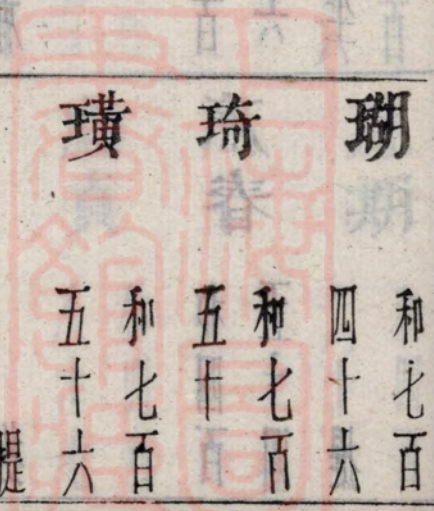 瑚
和七百
四十六
琦
和七百
五十
璜
和七百
五十六